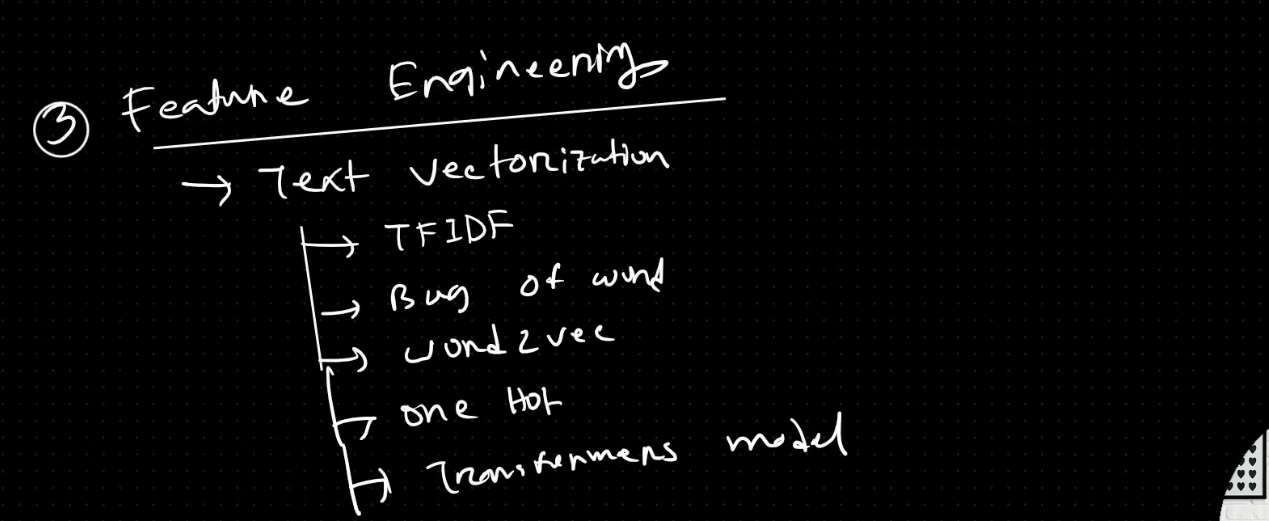 ③ Feature Engineering
→ Text vectorization
→ TFIDF
→ Bag of word
→ word2vec
→ one Hot
→ Transformers model